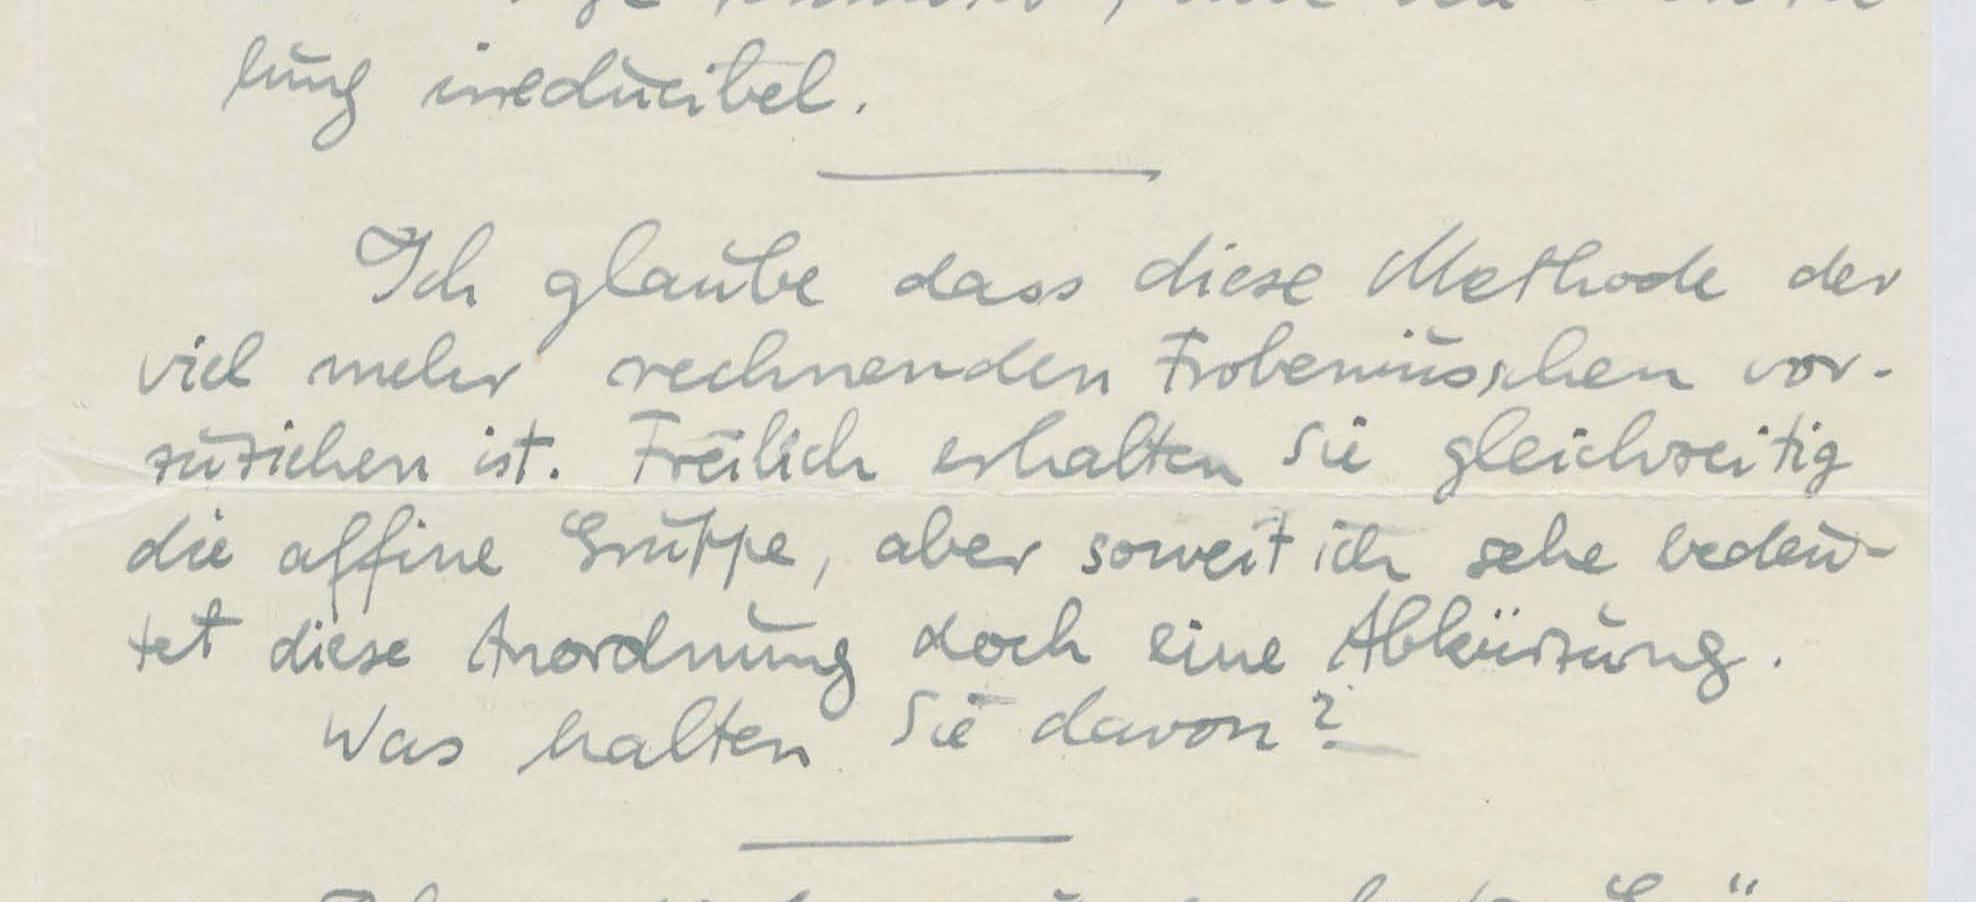 lung irreducibel.
Ich glaube dass diese Methode der
viel mehr rechnenden Frobeniusschen vor-
zuziehen ist. Freilich erhalten Sie gleichzeitig
die affine Gruppe, aber soweit ich sehe bedeu-
tet diese Anordnung doch eine Abkürzung.
Was halten Sie davon?